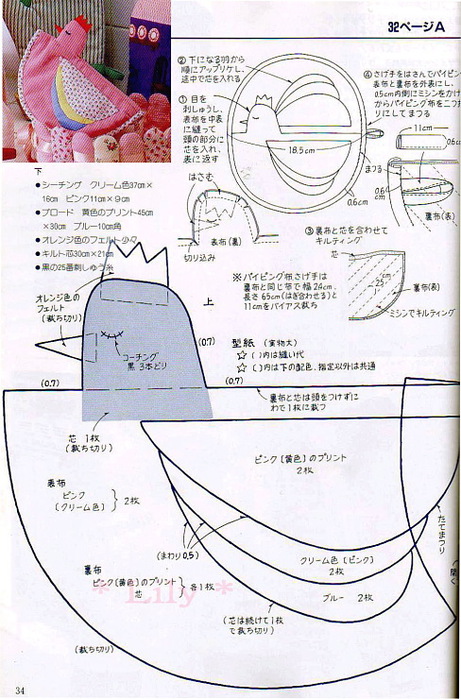 32ページA
②下になる羽から
順にアップリケし、
途中で芯を入れる
①目を
刺しゅうし、
表布を中表
に縫って
頭の部分に
芯を入れ、
表に返す
18.5cm
0.6cm
④さげ手をはさんでパイピン
表布と裏布を外表にし、
0.5cm内側にミシンをかけ
からパイピング布を二つ
りにしてまつる
11cm
0.6cm
まつる
0.6
cm
裏布(表)
下
●シーチング クリーム色37cm×
16cm ピンク11cm×9cm
●ブロード 黄色のプリント45cm
×30cm ブルー10cm角
●オレンジ色のフェルト少々
●キルト芯30cm×21cm
●黒の25番刺しゅう糸
はさむ
表布(裏)
切り込み
③裏布と芯を合わせて
キルティング
芯
裏布(表)
ミシンでキルティング
※パイピング布さげ手は
裏布と同じ布で幅24cm、
長さ65cm(はぎ合わせる)と
11cmをバイアス裁ち
オレンジ色の
フェルト
(裁ち切り)
上
(0.7)
コーチング
黒3本どり
型紙 (実物大)
☆( )内は縫い代
☆〔 〕内は下の配色、指定以外は共通
(0.7)
(0.7)
裏布と芯は頭をつけずに
わで1枚に裁つ
芯 1枚
(裁ち切り)
ピンク〔黄色〕のプリント
2枚
表布
ピンク
〔クリーム色〕
2枚
(まわり0.5)
たてまつり
クリーム色〔ピンク〕
2枚
ブルー 2枚
裏布
ピンク〔黄色〕のプリント
芯
各1枚
* Lily *
(芯は続けて1枚
で裁ち切り)
(裁ち切り)
34